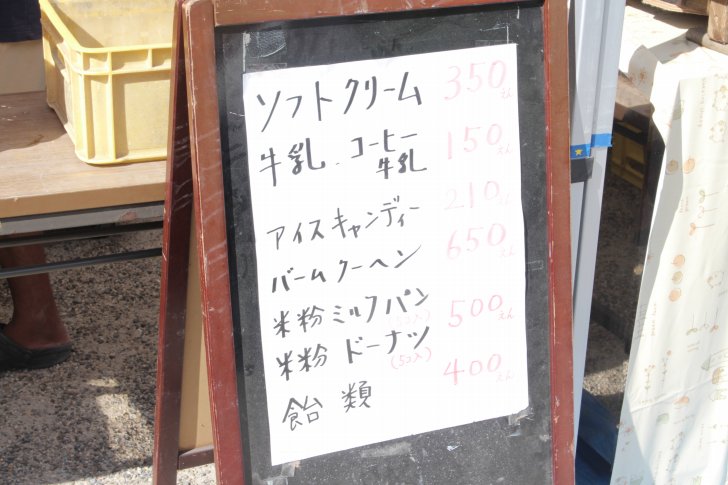 ソフトクリーム 350えん
牛乳、コーヒー牛乳 150えん
アイスキャンディー 210えん
バームクーヘン 650えん
米粉ミルクパン
米粉ドーナツ (5コ入) 500えん
飴類 400えん